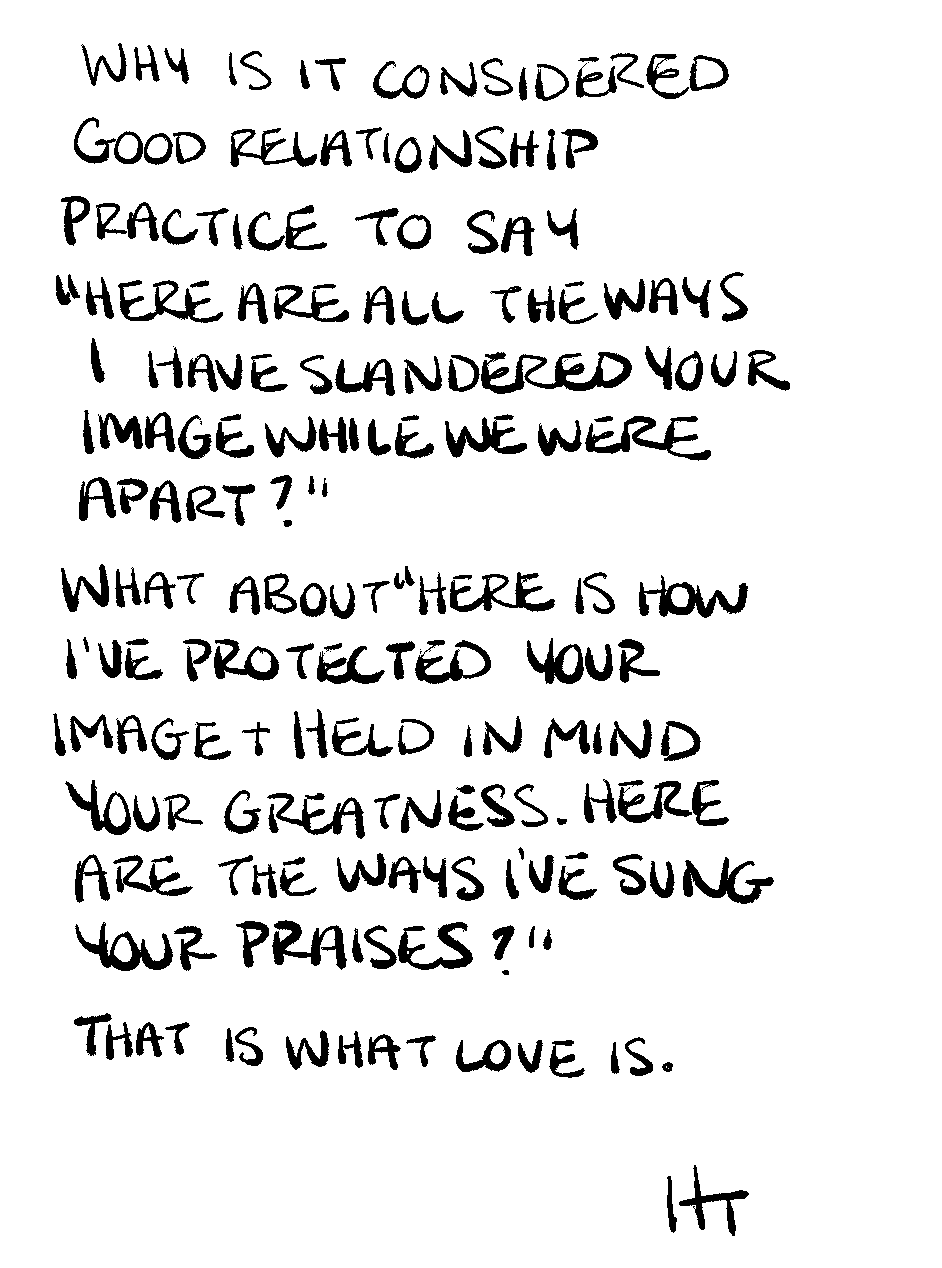 WHY IS IT CONSIDERED
GOOD RELATIONSHIP
PRACTICE TO SAY
"HERE ARE ALL THE WAYS
I HAVE SLANDERED YOUR
IMAGE WHILE WE WERE
APART?"
WHAT ABOUT "HERE IS HOW
I'VE PROTECTED YOUR
IMAGE + HELD IN MIND
YOUR GREATNESS. HERE
ARE THE WAYS I'VE SUNG
YOUR PRAISES?"
THAT IS WHAT LOVE IS.
HT